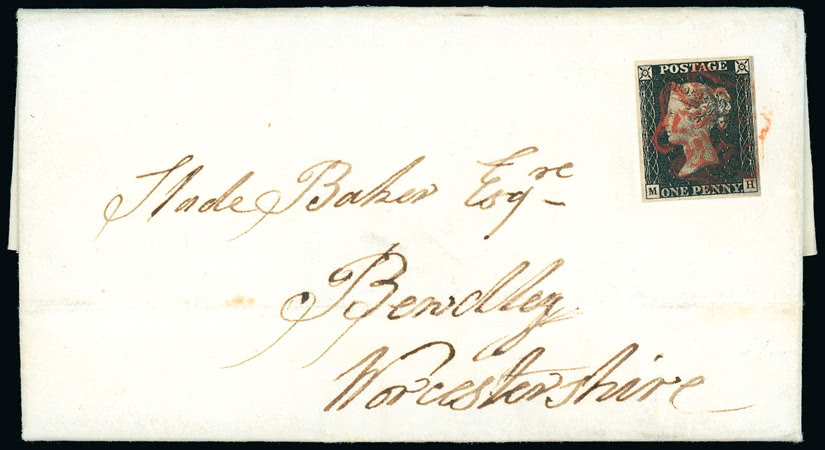 POSTAGE
M H
ONE PENNY
Slade Baker Esqre
Bewdley
Worcestershire